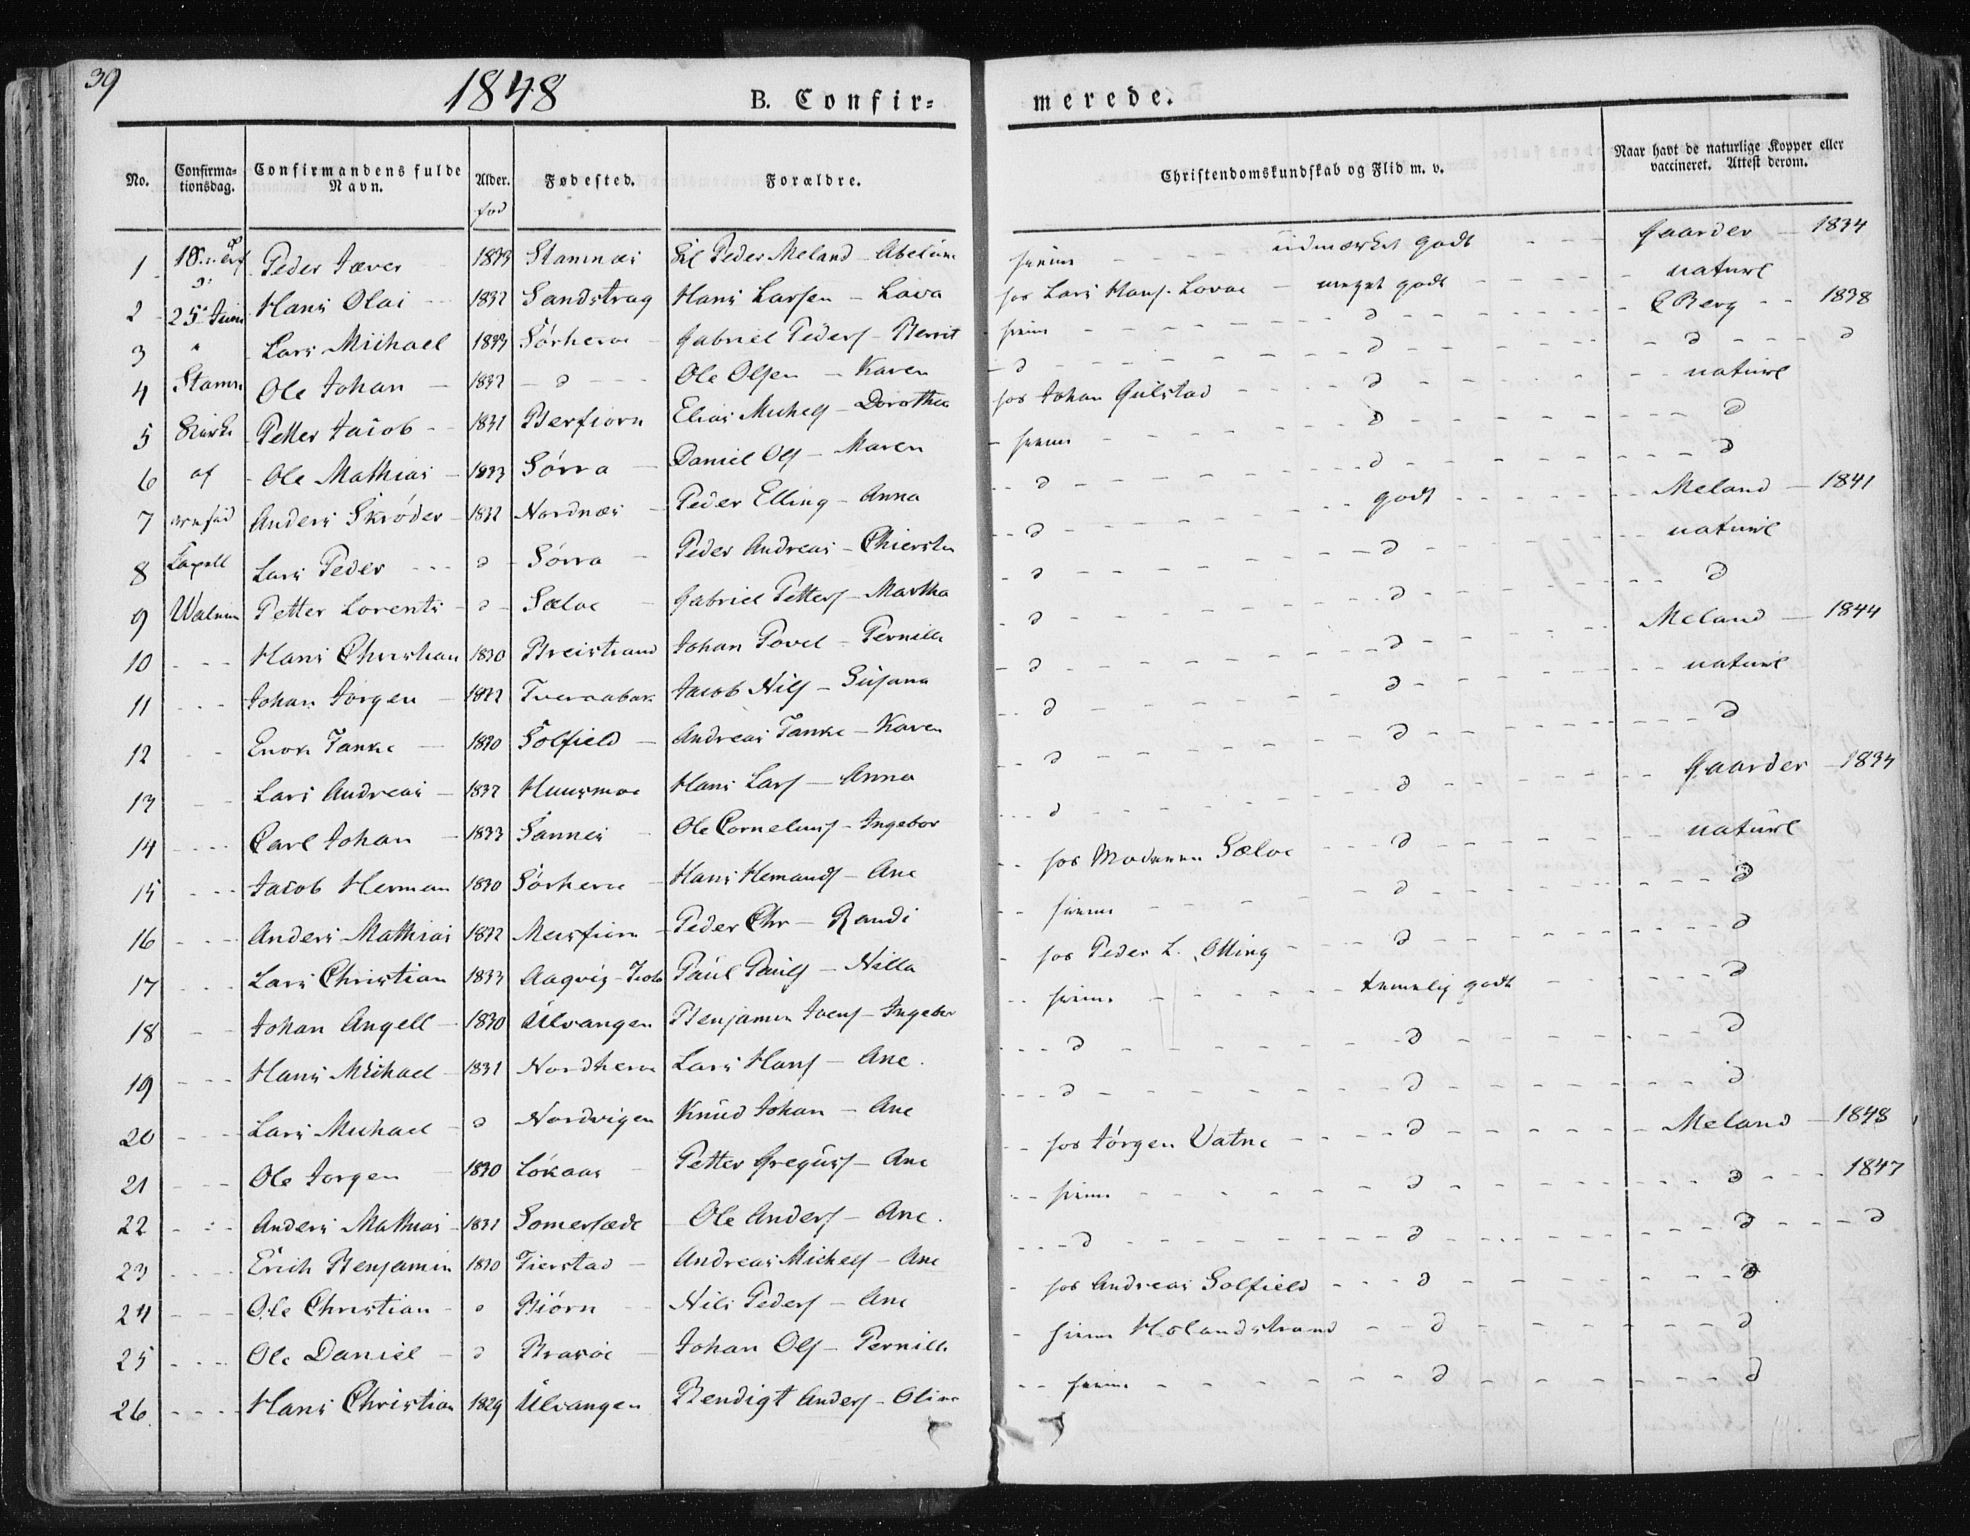 39
1848
B. Confir=
merede.
No.
Confirma-
tionsdag.
Confirmandens fulde
Navn.
Alder.
fød
Fødested.
Forældre.
Christendomskundskab og Flid m. v.
Naar havt de naturlige Kopper eller
vaccineret. Attest derom.
1 Peder 1833 Stamnæs Peder Meland - hiem udmærket godt Gaarder - 1834
2 25 Juni Hans Olai 1832 Sandstrag Hans Larsen - Lava hos Lars Hans. Lovae - meget godt naturl
3 " Lars Michael 1833 Sørherøe Gabriel Peders - Berrit hiem d Berg 1838
4 Stamn Ole Johan 1832 d Ole Olsen - Karen d d d d
5 Kirke Petter Jacob 1831 Elias Michels - Dorothea hos Johan Gulstad d naturl
6 af Ole Mathias 1833 Sørra Daniel Ols - Maren hiem d d
7 Anders Skrøder 1832 Nordnæs Peder Elling - Anna d d d
8 Capell Lars Peder d Sørra Peder Andreas - d godt Meland - 1841
9 Petter Lorents d Sæloe Gabriel Petters - Martha d d naturl
10 Hans Christian 1830 Breistrand Johan Povel - Pernille d d d
11 Johan Jørgen 1832 Jacob Nils - Susana d d Meland - 1844
12 Enok Tanke 1830 Solfield Andreas Tanke - Karen d d naturl
13 Lars Andreas 1832 Huusmoe Hans Lars - Anna d d d
14 Carl Johan 1833 Sannes Ole Cornelius - Ingebor d d Gaarder - 1834
15 Jacob Herman 1830 Sørherøe Hans Hemands - Ane hos Sæloe d naturl
16 Anders Mathias 1832 Peder Chr - Randi hiem d d
17 Lars Christian 1833 Paul Pauls - Nilla hos Peder L. Olting d d
18 Johan Angell 1830 Ulvangen Benjamin - Ingebor hiem temelig godt d
19 Hans Michael 1831 Nordherøe Lars Hans - Ane. d d d
20 Lars Michael d Nordvigen Knud Johan - Ane d d d
21 Ole Jørgen 1830 Løkaas Petter Greguss - Ane hos Jørgen Vatne d Meland - 1848
22 Anders Mathias Somersæde Ole Anders - Ane. hiem d d 1847
23 Erich Benjamin 1830 Tierstad Andreas Michels - Ane d d d d
24 Ole Christian d Biørn Nils Peders - Ane hos Andreas Solfield d d
25 Ole Daniel d Brasøe Johan Ols - Pernille hiem Holandstrand d d
26. Hans Christian 1829 Ulvangen Bendigt Anders - Oline hiem d d